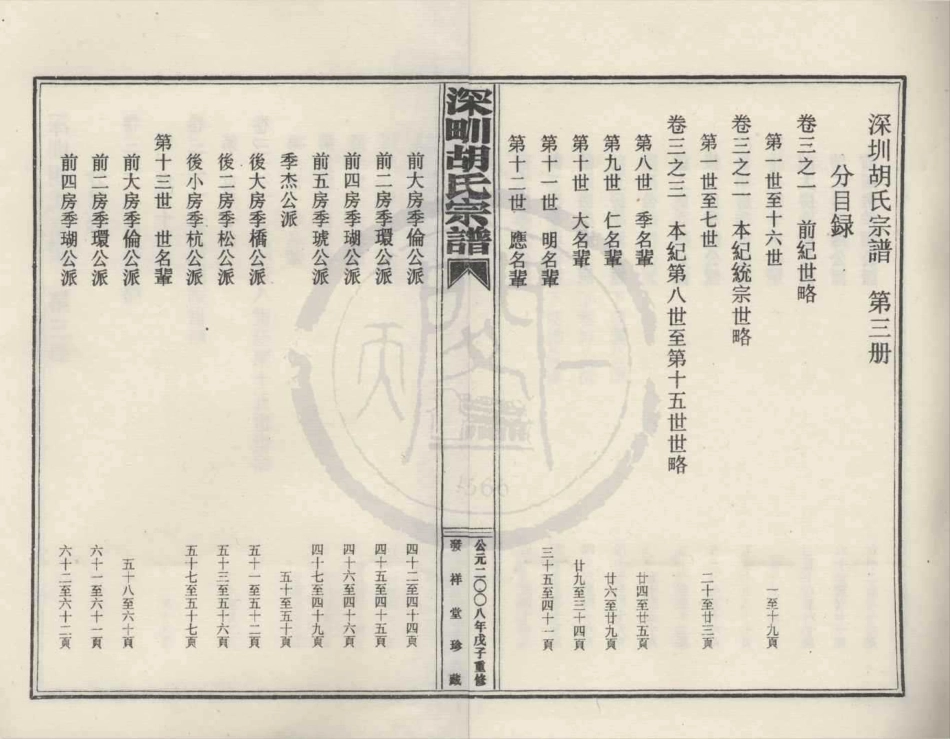 深圳胡氏宗譜 第三册
分目録
卷三之一 前紀世略
第一世至十六世 一至十九頁
卷三之二 本紀統宗世略
第一世至七世 二十至廿三頁
卷三之三 本紀第八世至第十五世世略
第八世 季名輩 廿四至廿五頁
第九世 仁名輩 廿六至廿九頁
第十世 大名輩 廿九至三十四頁
第十一世 明名輩 三十五至四十一頁
第十二世 應名輩
深甽胡氏宗譜
公元二〇〇八年戊子重修
發祥堂珍藏
前大房季倫公派 四十二至四十四頁
前二房季環公派 四十五至四十五頁
前四房季瑚公派 四十六至四十六頁
前五房季琥公派 四十七至四十九頁
季杰公派 五十至五十頁
後大房季橋公派 五十一至五十二頁
後二房季松公派 五十三至五十六頁
後小房季杭公派 五十七至五十七頁
第十三世 世名輩
前大房季倫公派 五十八至六十頁
前二房季環公派 六十一至六十一頁
前四房季瑚公派 六十二至六十二頁